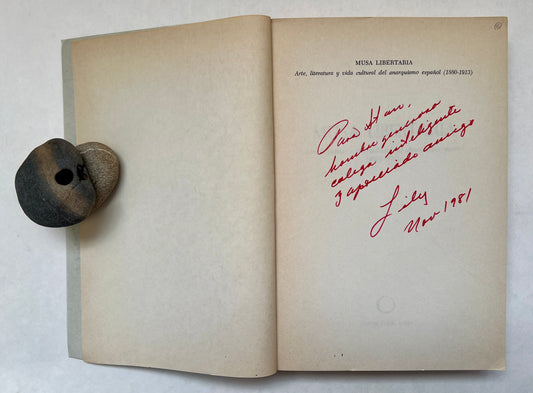 MUSA LIBERTARIA
Arte, literatura y vida cultural del anarquismo español (1880-1913)
Para Stan,
hombre generoso
colega inteligente
y apreciado amigo
Lily
Nov 1981